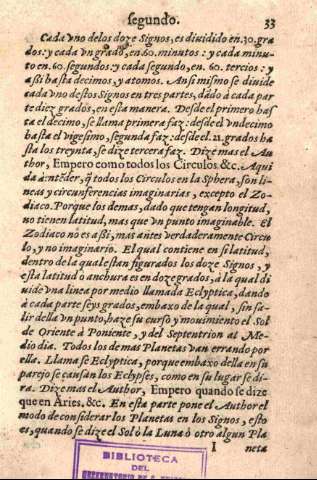 segundo. 33
Cada vno de los doze Signos, es diuidido en.30.gra
dos: y cada vn grado, en 60. minutos : y cada minu-
to en. 60. segundos: y cada segundo, en. 60. tercios : y
assi hasta decimos, y atomos. Ansi mismo se diuide
cada vno destos Signos en tres partes, dãdo à cada par
te diez grados, en esta manera. Desde el primero has
ta el decimo, se llama primera faz: desde el vndecimo
hasta el vigesimo, segunda faz: desde el. 21. grados ha
sta los treynta, se dize tercera faz. Dize mas el Au
thor, Empero como todos los Circulos &c. Aqui
da à entẽder, q̃ todos los Circulos en la Sphera, son li-
neas y circunferencias imaginarias, excepto el Zo-
diaco. Porque los demas, dado que tengan longitud,
no tienen latitud, mas que vn punto imaginable. El
Zodiaco no es assi, mas antes verdaderamente Circu
lo, y no imaginario. El qual contiene en si latitud,
dentro de la qual estan figurados los doze Signos, y
esta latitud o anchura es en doze grados, à la qual di
uide vna linea por medio llamada Eclyptica, dando
à cada parte seys grados, embaxo de la qual, sin sa-
lir della vn punto, haze su curso y mouimiento el Sol
de Oriente à Poniente, y del Septentrion al Me-
dio dia. Todos los de mas Planetas van errando por
ella. Llama se Ecliptica, porque embaxo della en su
parejo se causan los Eclypses, como en su lugar se di-
ra. Dize mas el Author, Empero quando se dize
que en Aries. &c. En esta parte pone el Author el
modo de considerar los Planetas en los Signos, esto
es, quando se dize el Sol ò la Luna ò otro algun Pla
I neta
BIBLIOTECA
DEL